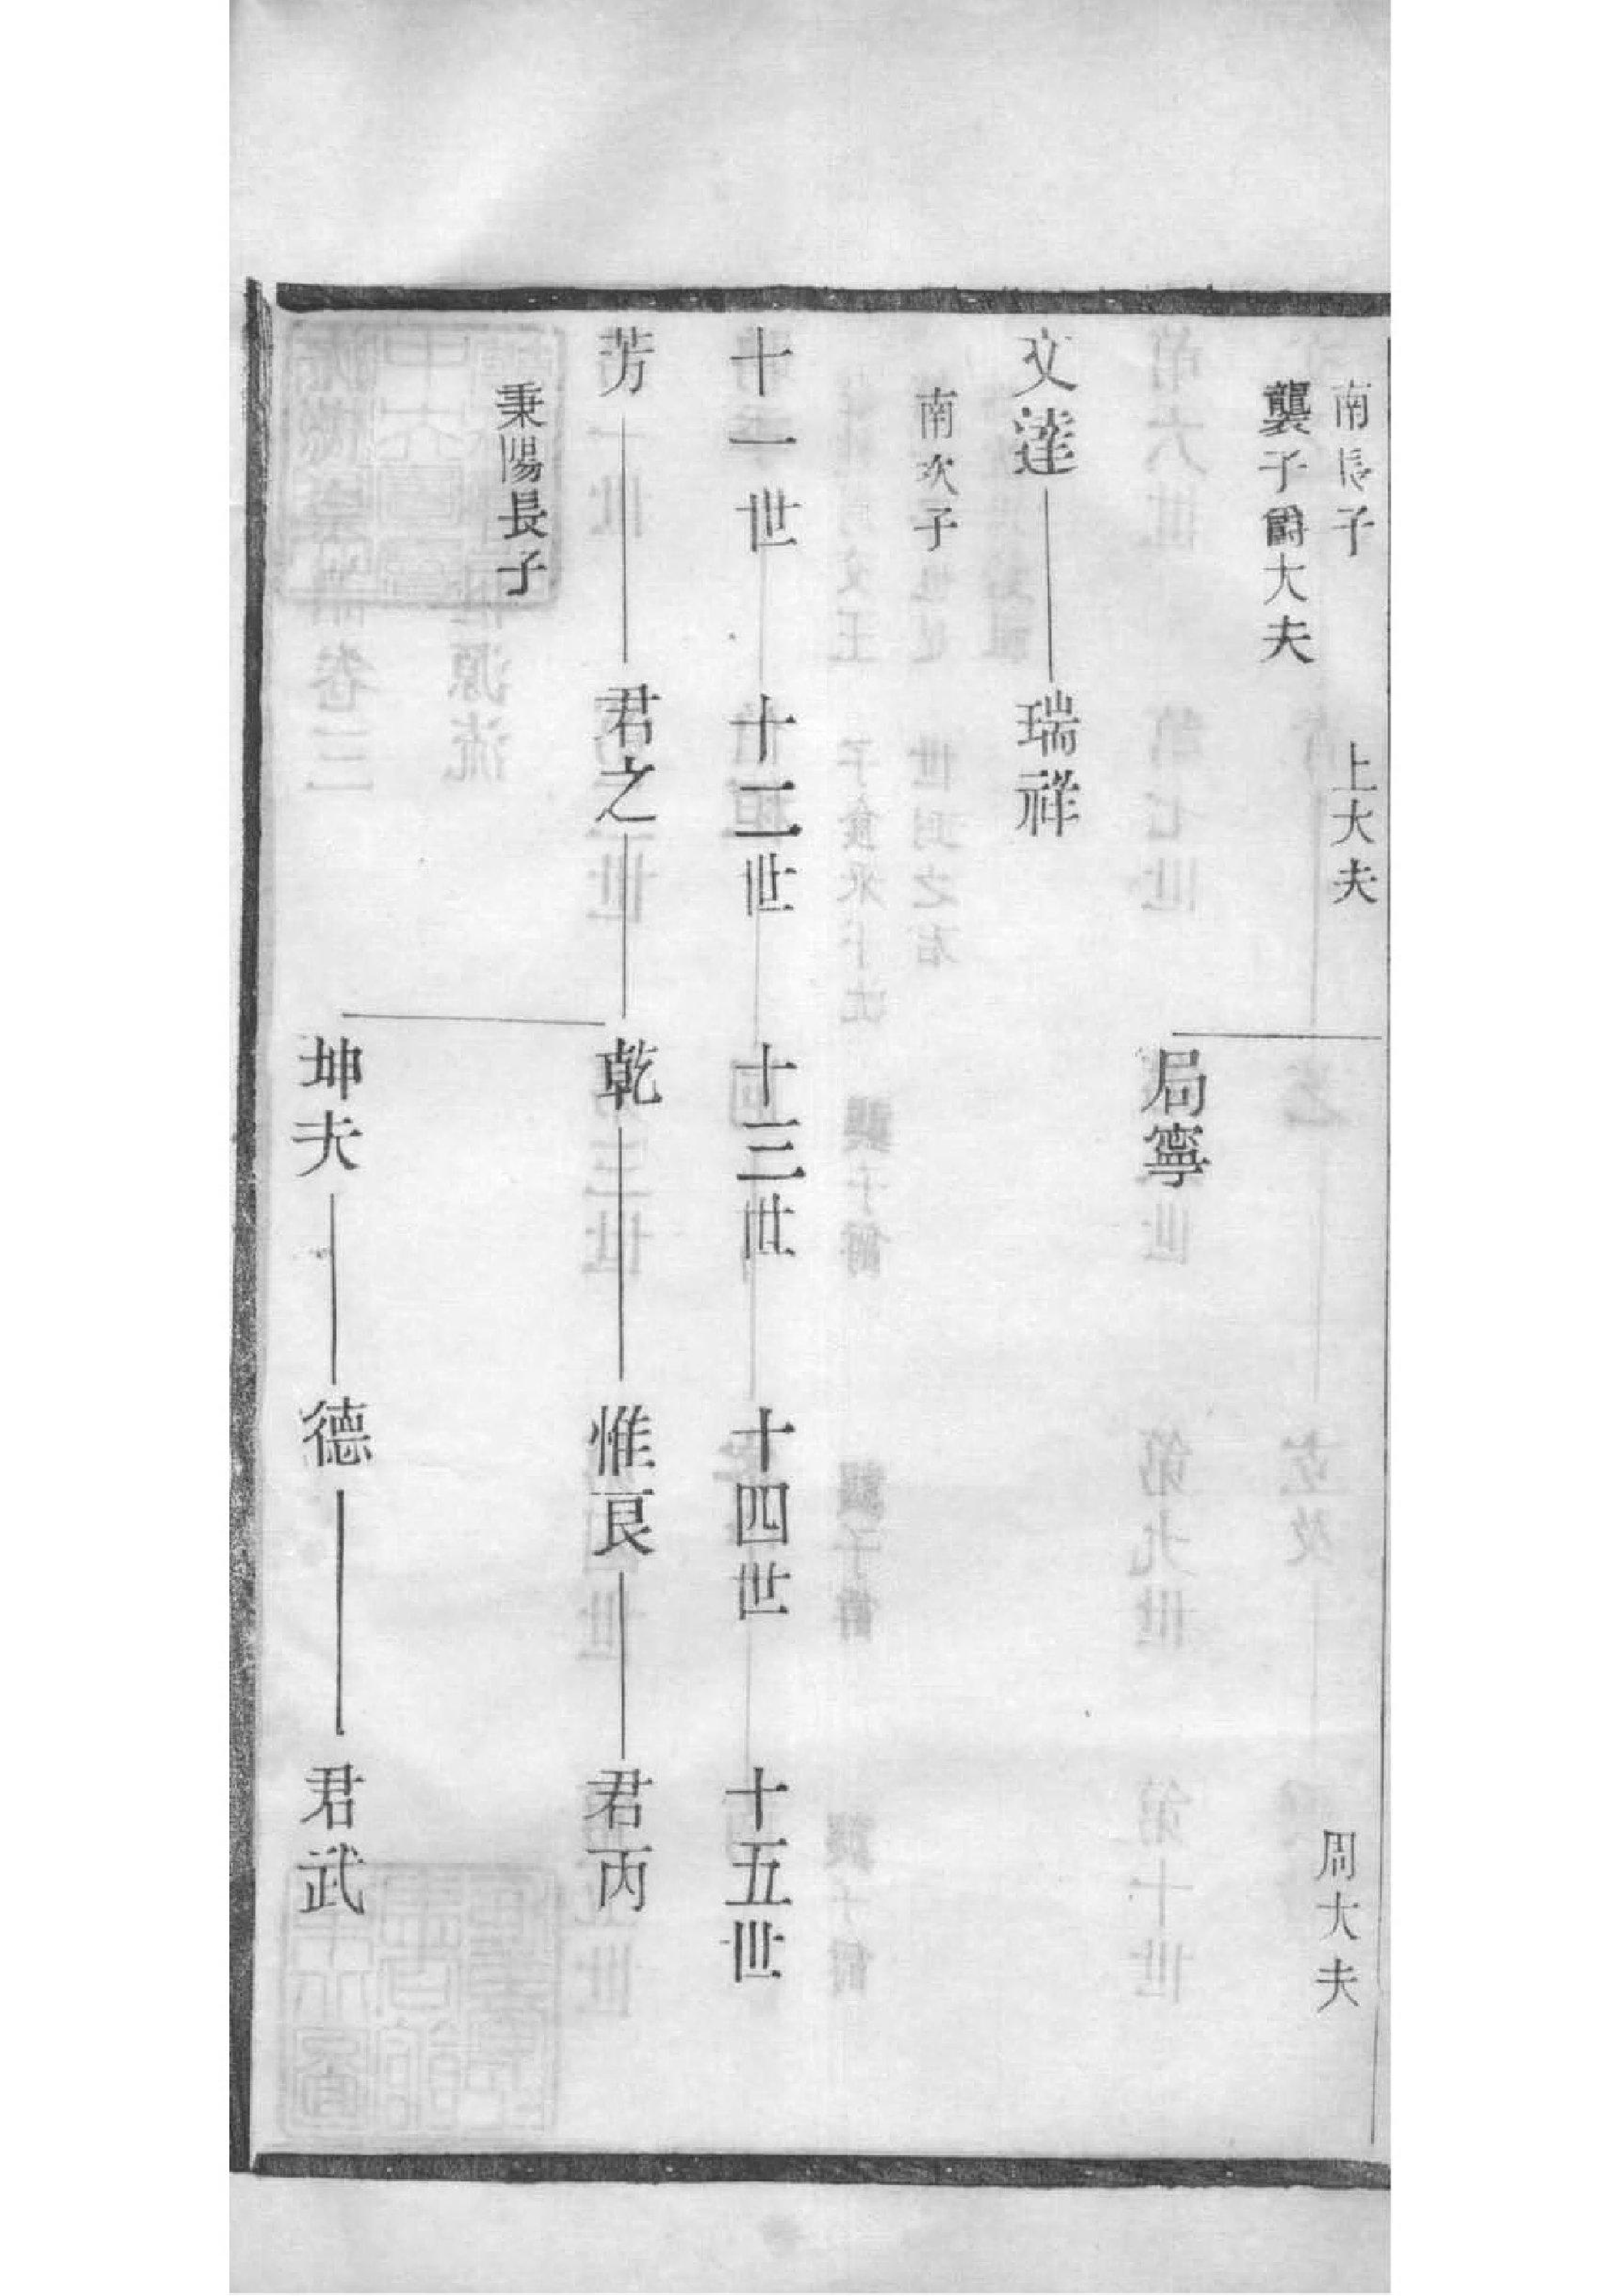 南長子
上大夫
周大夫
襲子爵大夫
局寧
文達
瑞祥
南次子
十一世
十二世
十三世
十四世
十五世
芳
君之
乾
惟良
君丙
秉陽長子
坤夫
德
君武